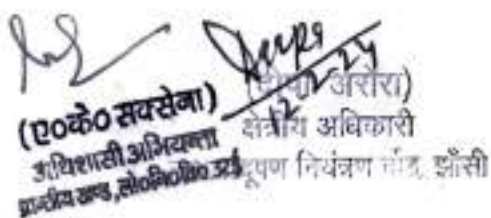 (ए०के० सक्सेना)
अधिशासी अभियन्ता
प्रान्तीय खण्ड, लो०नि०वि०
12-2-24
अरोरा)
क्षेत्रीय अधिकारी
नियंत्रण बोर्ड, झाँसी